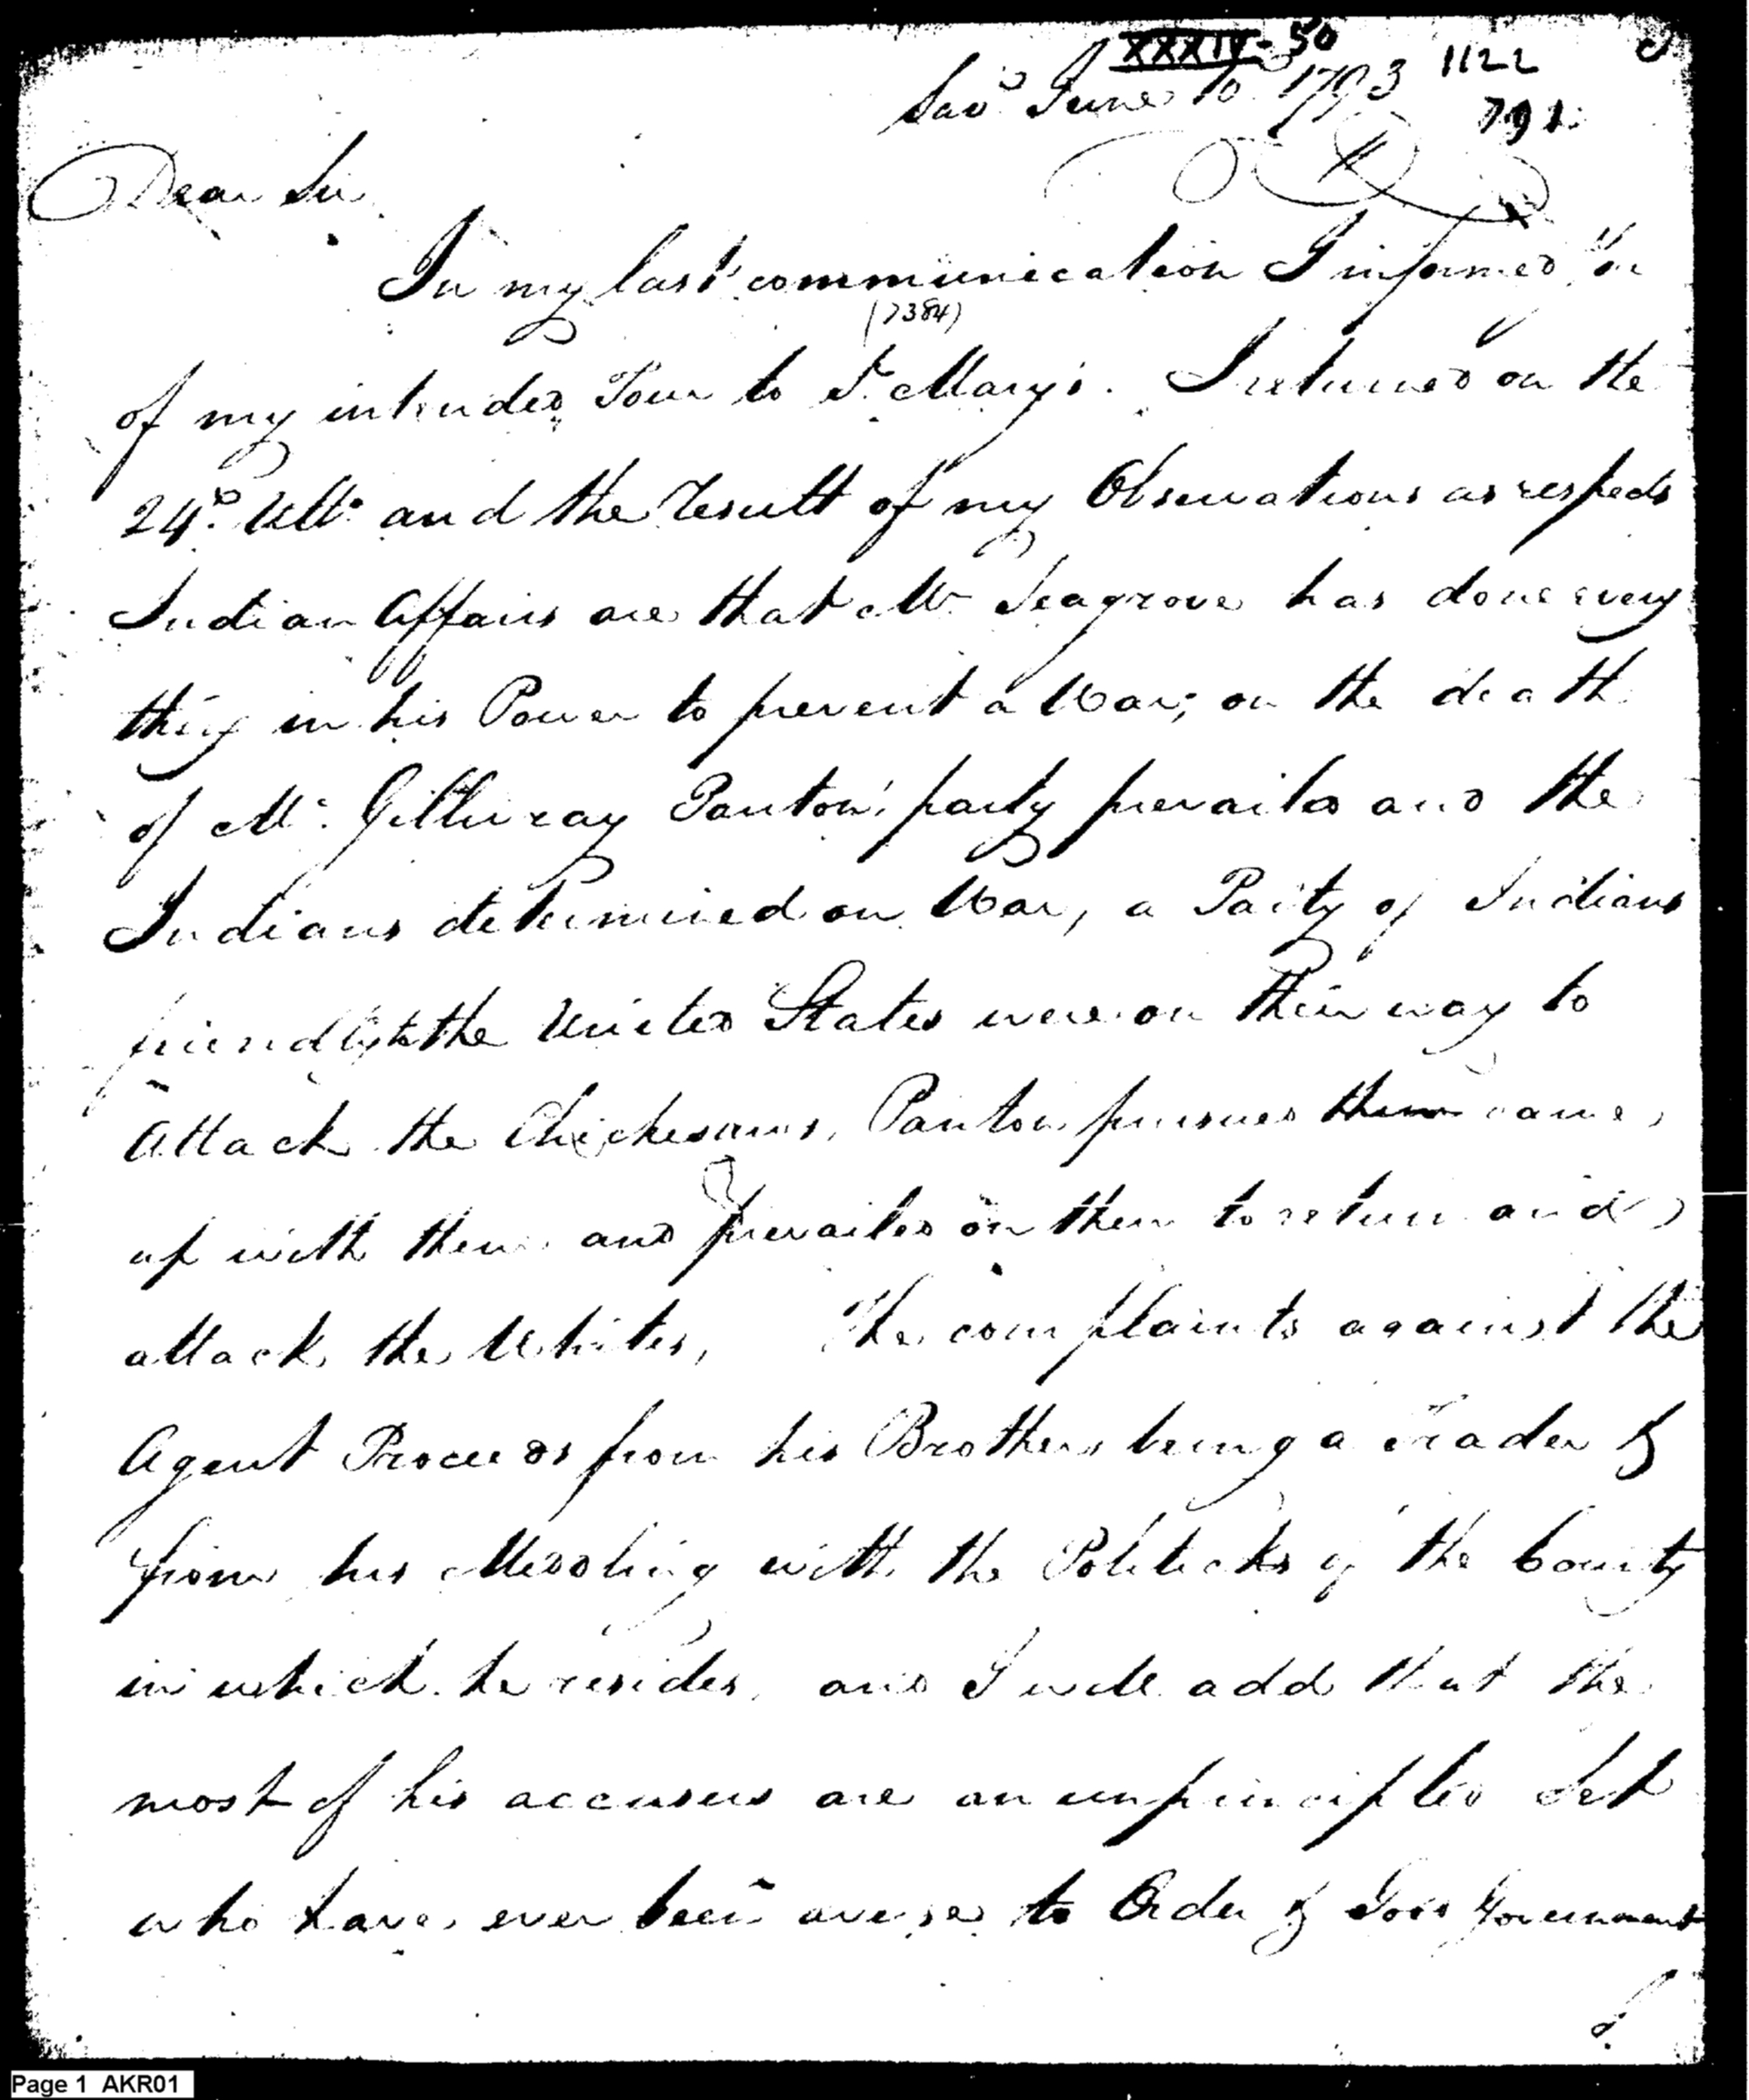 XXXIV-50
1122
Sav.o June 10 1793
791
Dear Sir
In my last communication I informed You
(7384)
of my intended Tour to St. Mary's. I returned on the
24.o Ulto. and the result of my Observations as respects
Indian Affairs are that Mr Seagrove has done every
thing in his Power to prevent a War; on the death
of Mc. Gillivray Panton's party prevailed and the
Indians determined on War, a Party of Indians
friendly to the United States were on their way to
Attack the Chickesaws, Panton pursued them came
up with them and prevailed on them to return and
attack the Whites, The complaints against the
Agent Proceeds from his Brothers being a Trader &
from his Meddling with the Politicks of the County
in which he resides, and I will add that the
most of his accusers are an unprincipled Set
who have ever been averse to Order & Good Government
Page 1 AKR01